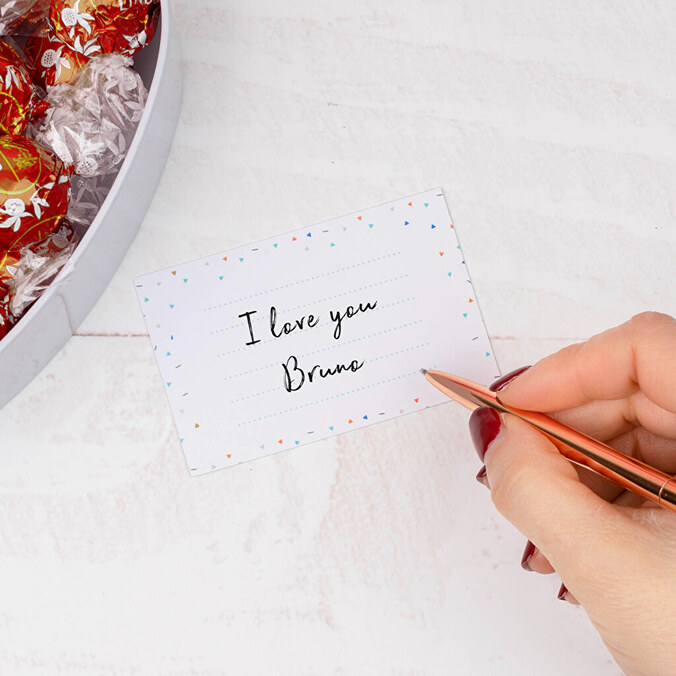 I love you
Bruno